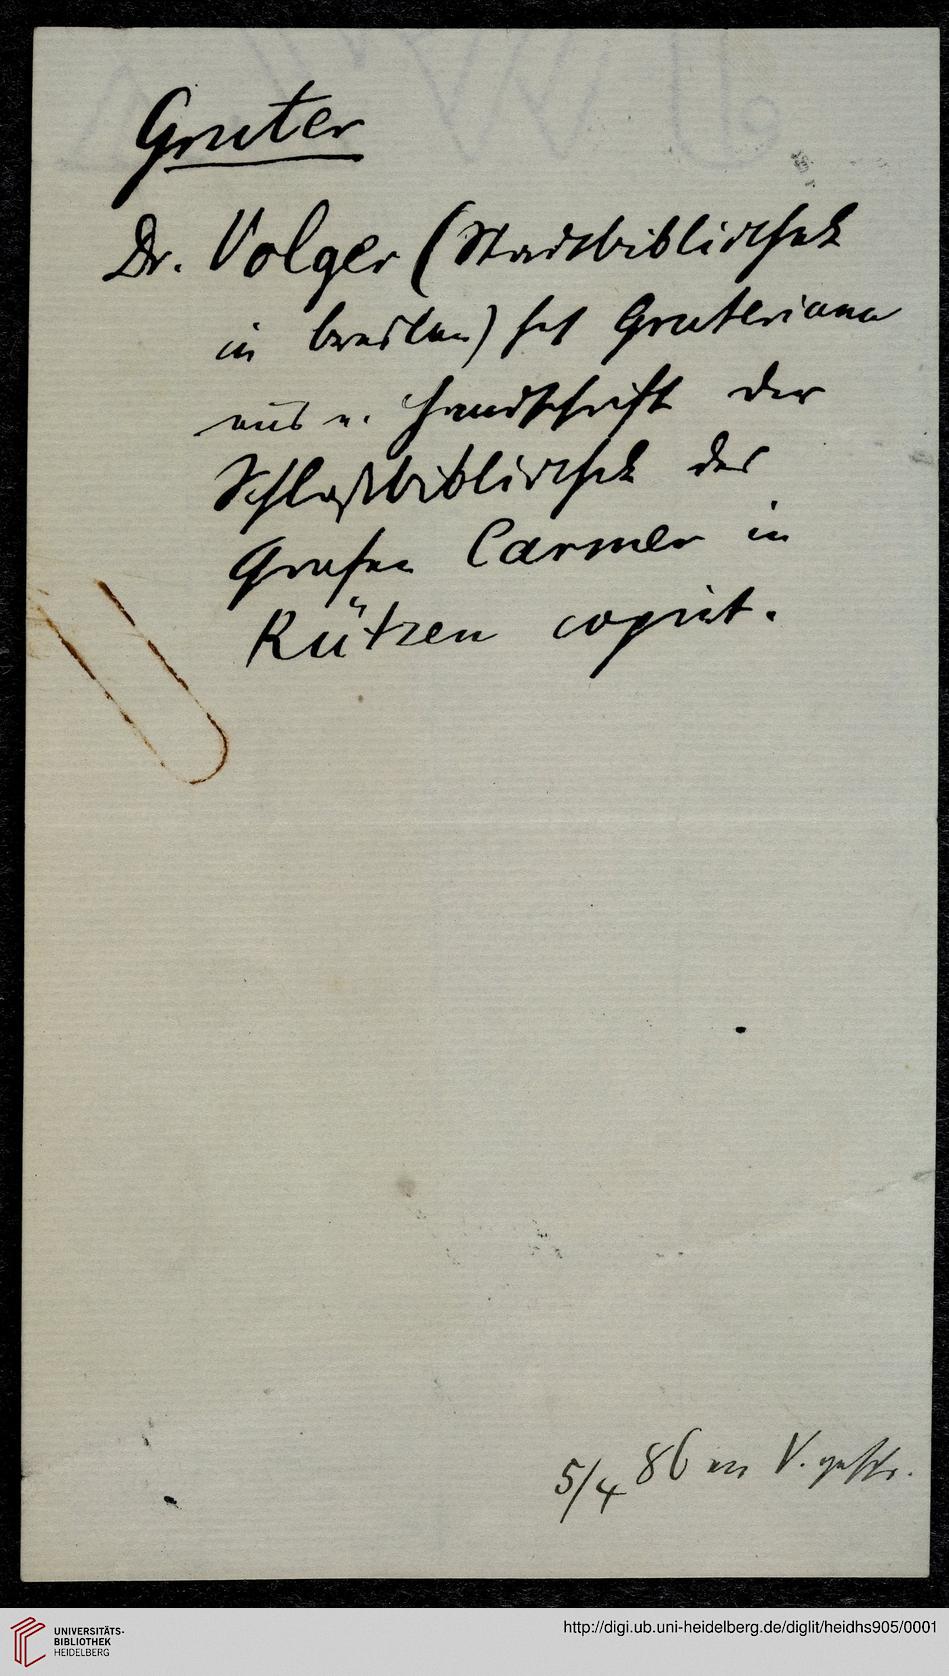 Gruter
Dr. Volger (Stadtbibliothek
in Breslau) hat Gruteriana
aus e. Handschrift der
Schloßbibliothek des
Grafen Carmer in
Rützen copirt.
5/4 86 an V. geschr.
UNIVERSITÄTS-
BIBLIOTHEK
HEIDELBERG
http://digi.ub.uni-heidelberg.de/diglit/heidhs905/0001